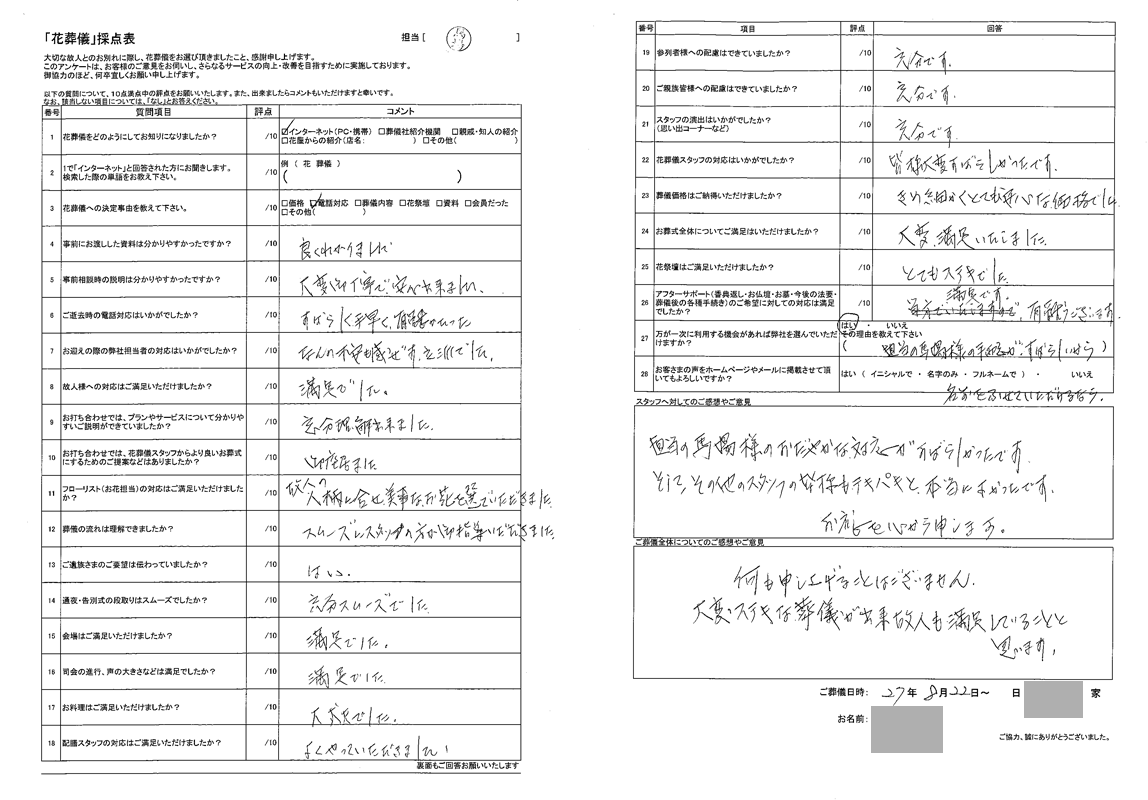 「花葬儀」採点表
担当 [ ]
大切な故人とのお別れに際し、花葬儀をお選び頂きましたこと、感謝申し上げます。
このアンケートは、お客様のご意見をお伺いし、さらなるサービスの向上・改善を目指すために実施しております。
御協力のほど、何卒宜しくお願い申し上げます。
以下の質問について、10点満点中の評点をお願いいたします。また、出来ましたらコメントもいただけますと幸いです。
なお、該当しない項目については、「なし」とお答えください。
番号 質問項目 評点 コメント
1 花葬儀をどのようにしてお知りになりましたか? /10 ☑インターネット(PC・携帯) □葬儀社紹介機関 □親戚・知人の紹介
□花屋からの紹介(店名: ) □その他( )
2 1で「インターネット」と回答された方にお聞きします。
検索した際の単語をお教え下さい。 /10 例 ( 花 葬儀 )
( )
3 花葬儀への決定事由を教えて下さい。 /10 □価格 ☑電話対応 □葬儀内容 □花祭壇 □資料 □会員だった
□その他( )
4 事前にお渡しした資料は分かりやすかったですか? /10 良くわかりました
5 事前相談時の説明は分かりやすかったですか? /10 大変御丁寧で、安心出来ました、
6 ご逝去時の電話対応はいかがでしたか? /10 すばらしく手早く、有難かった
7 お迎えの際の弊社担当者の対応はいかがでしたか? /10 なんの不安も感ぜず、立派でした。
8 故人様への対応はご満足いただけましたか? /10 満足でした。
9 お打ち合わせでは、プランやサービスについて分かりや
すいご説明ができていましたか? /10 充分理解出来ました。
10 お打ち合わせでは、花葬儀スタッフからより良いお葬式
にするためのご提案などはありましたか? /10 御座居ました
11 フローリスト(お花担当)の対応はご満足いただけました
か? /10 故人の
人柄に合せ美事なお花を選んでいただきました
12 葬儀の流れは理解できましたか? /10 スムーズにスタッフの方が御指導いただきました.
13 ご遺族さまのご要望は伝わっていましたか? /10 はい.
14 通夜・告別式の段取りはスムーズでしたか? /10 充分スムーズでした
15 会場はご満足いただけましたか? /10 満足でした。
16 司会の進行、声の大きさなどは満足でしたか? /10 満足でした
17 お料理はご満足いただけましたか? /10 大丈夫でした.
18 配膳スタッフの対応はご満足いただけましたか? /10 よくやっていただきました
裏面もご回答お願いいたします
番号 項目 評点 回答
19 参列者様への配慮はできていましたか? /10 充分です.
20 ご親族皆様への配慮はできていましたか? /10 充分です.
21 スタッフの演出はいかがでしたか?
(思い出コーナーなど) /10 充分です.
22 花葬儀スタッフの対応はいかがでしたか? /10 皆様大変すばらしかったです.
23 葬儀価格はご納得いただけましたか? /10 きめ細かくとても良心な価格でした
24 お葬式全体についてご満足はいただけましたか? /10 大変、満足いたしました
25 花祭壇はご満足いただけましたか? /10 とてもステキでした
26 アフターサポート(香典返し・お仏壇・お墓・今後の法要・
葬儀後の各種手続き)のご希望に対しての対応は満足
でしたか? /10 満足です.
有難うございます.
27 万が一次に利用する機会があれば弊社を選んでいただ
けますか? はい ・ いいえ
その理由を教えて下さい
( 担当の馬場様の手際が、すばらしいから )
28 お客さまの声をホームページやメールに掲載させて頂
いてもよろしいですか? はい ( イニシャルで ・ 名字のみ ・ フルネームで ) ・ いいえ
名前をふせていただけるなら.
スタッフへ対してのご感想やご意見
担当の馬場様のおだやかな対応がすばらしかったです.
そして、その他のスタッフの皆様もテキパキと、本当によかったです.
お礼を心から申します。
ご葬儀全体についてのご感想やご意見
何も申し上げることはございません.
大変ステキな葬儀が出来故人も満足していることと
思います.
ご葬儀日時: 27年 8月22日～ 日 家
お名前:
ご協力、誠にありがとうございました。